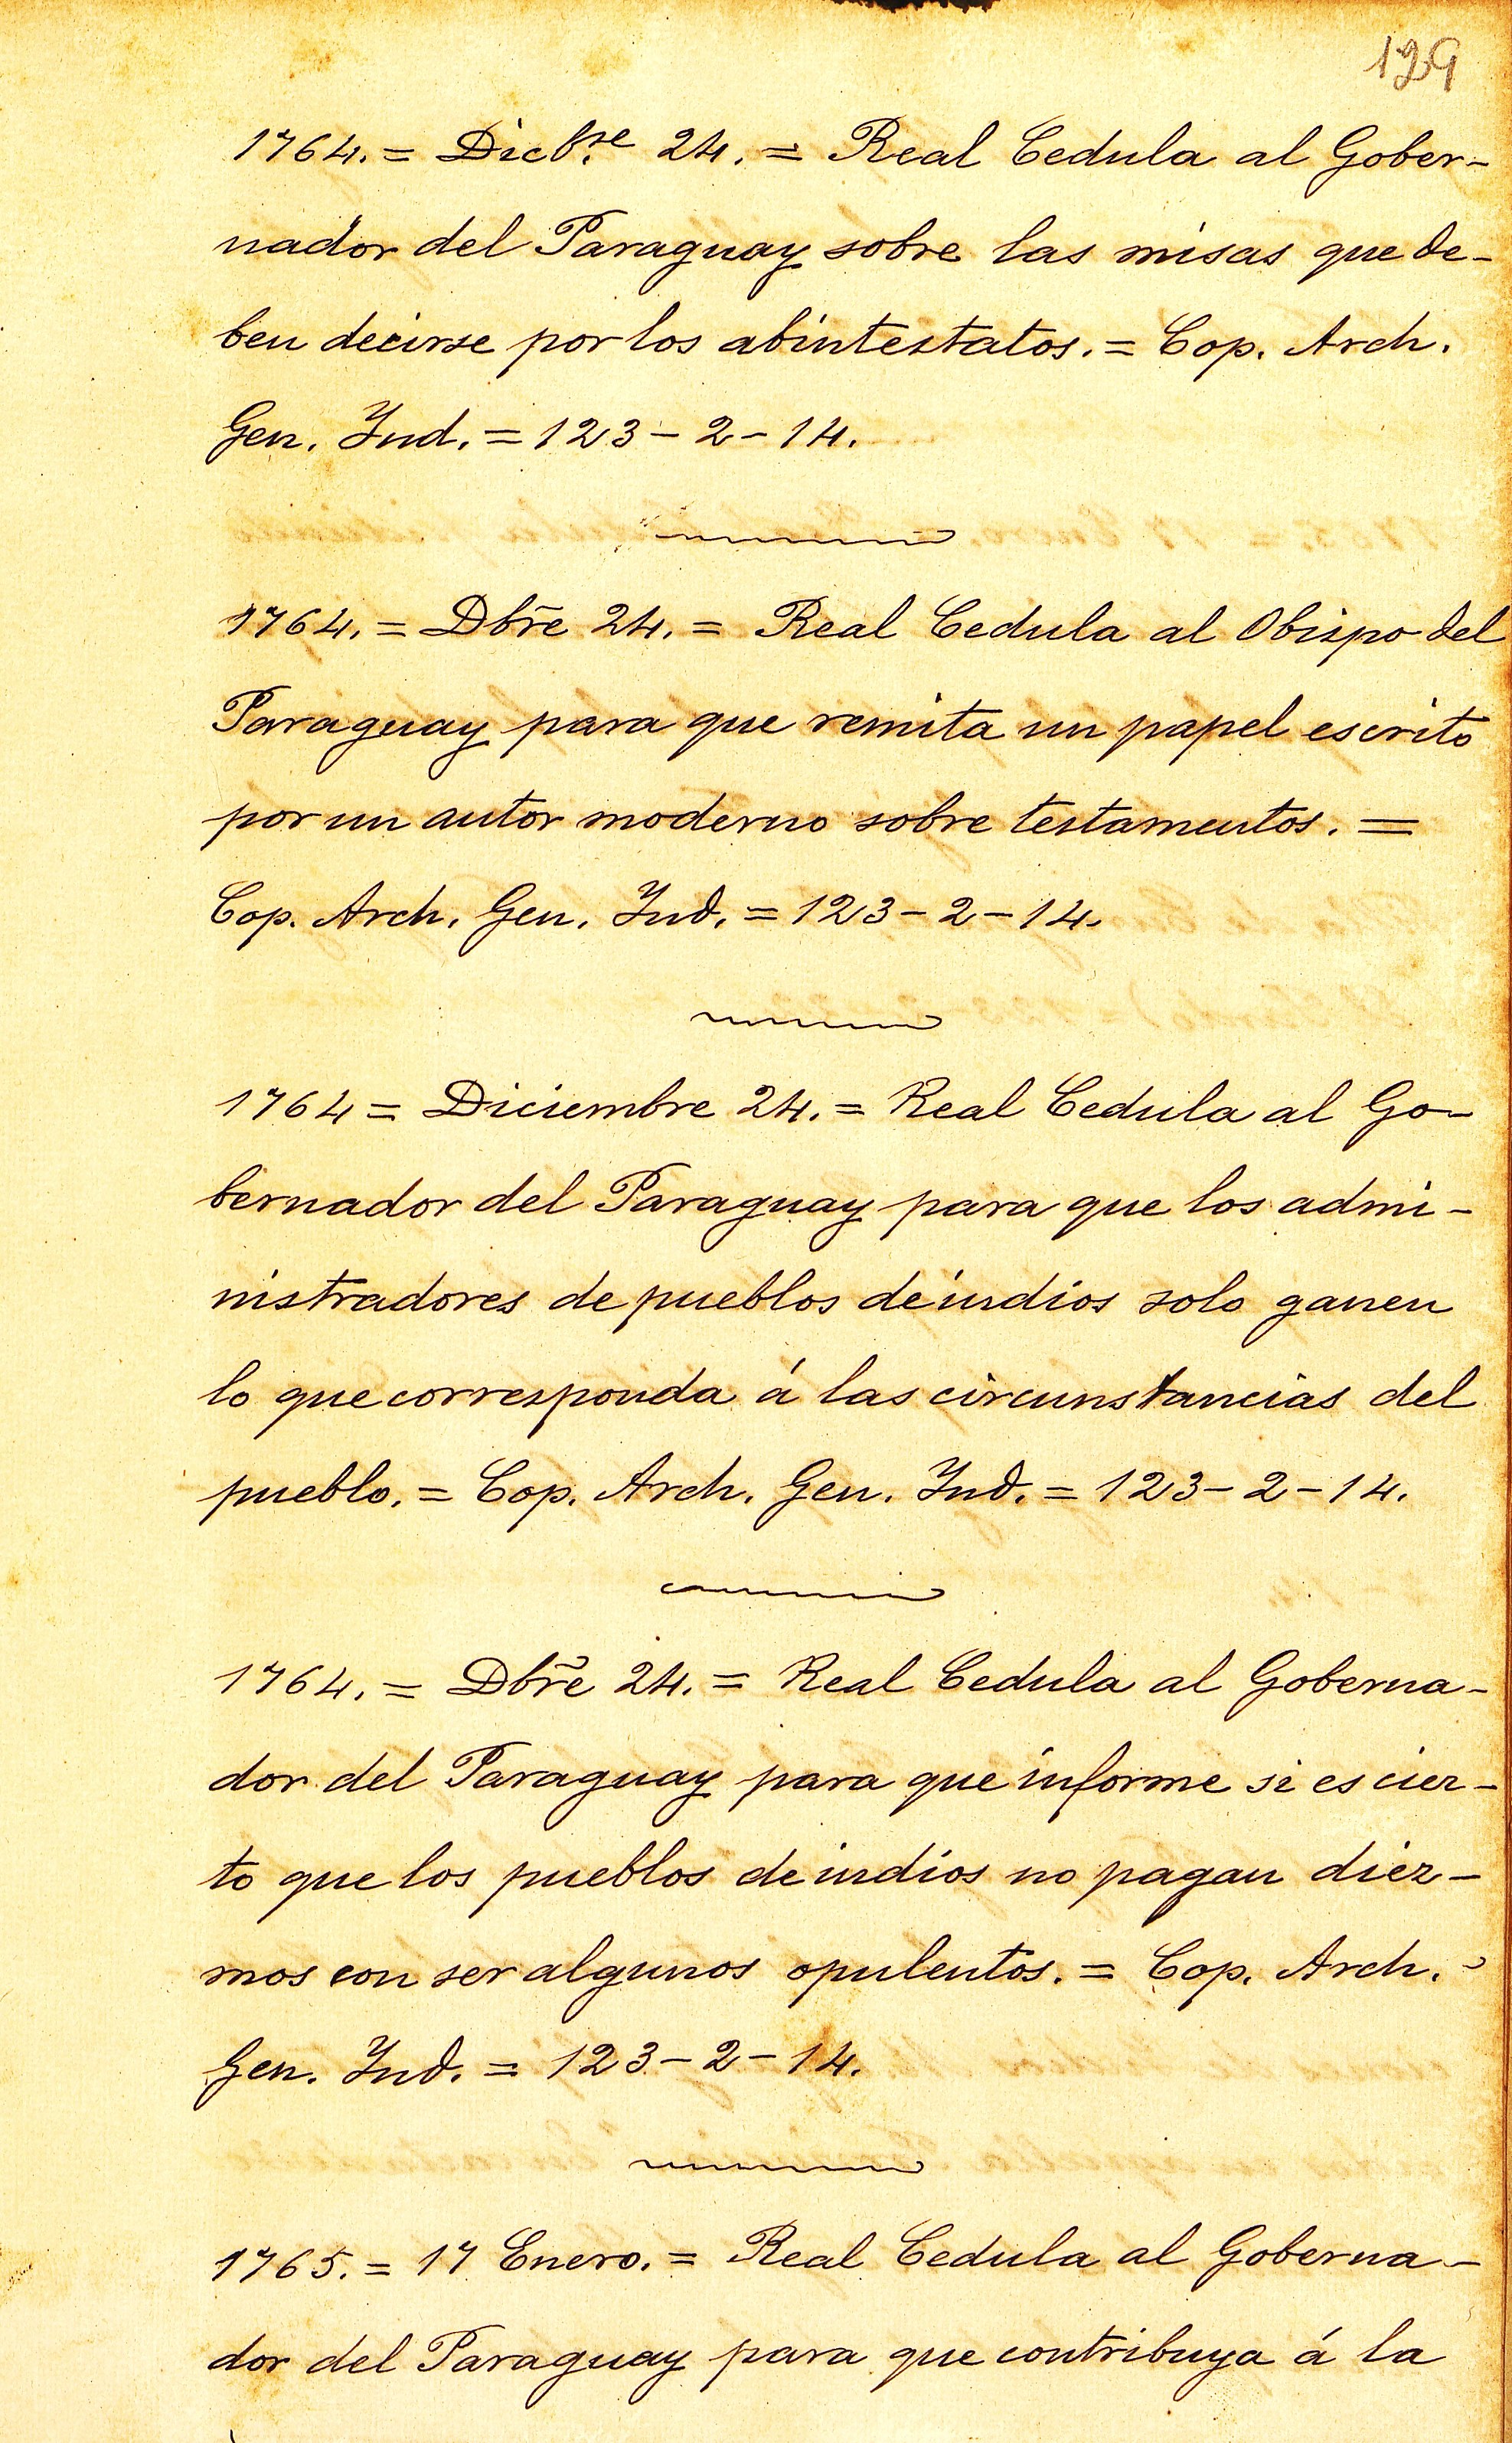 129
1764. = Dicb.re 24. = Real Cedula al Gober-
nador del Paraguay sobre las misas que de-
ben decirse por los abintestatos. = Cop. Arch.
Gen. Ind. = 123 - 2 - 14.
1764. = Dbr̃e 24. = Real Cedula al Obispo del
Paraguay para que remita un papel escrito
por un autor moderno sobre testamentos. =
Cop. Arch. Gen. Ind. = 123 - 2 - 14.
1764 = Diciembre 24. = Real Cedula al Go-
bernador del Paraguay para que los admi-
nistradores de pueblos de indios solo ganen
lo que corresponda á las circunstancias del
pueblo. = Cop. Arch. Gen. Ind. = 123 - 2 - 14.
1764. = Dbr̃e 24. = Real Cedula al Goberna-
dor del Paraguay para que informe si es cier-
to que los pueblos de indios no pagan diez-
mos con ser algunos opulentos. = Cop. Arch.
Gen. Ind. = 123 - 2 - 14.
1765. = 17 Enero. = Real Cedula al Goberna-
dor del Paraguay para que contribuya á la